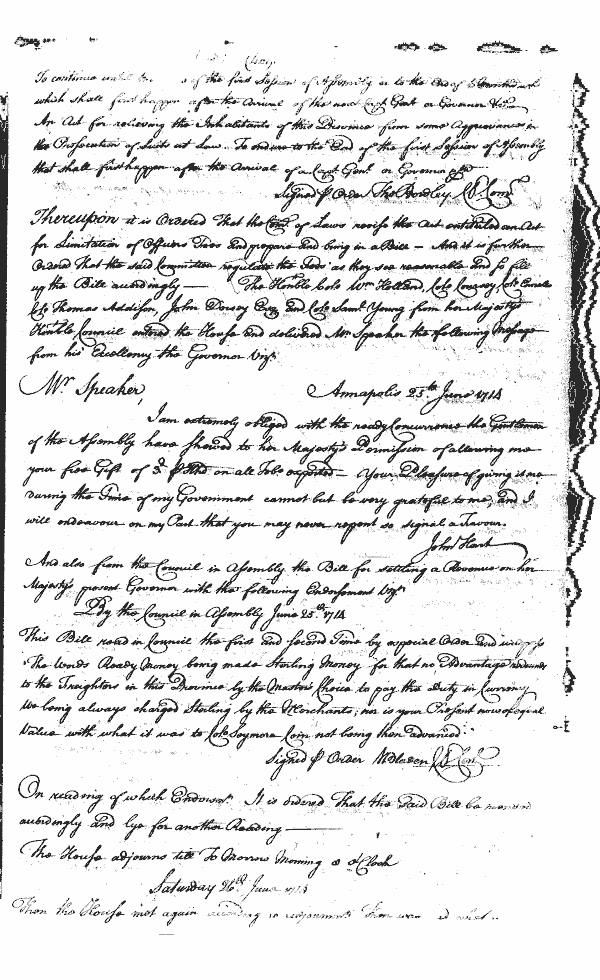 To continue of the first Session of Assembly or to the End of
which shall first happen after the arrival of the next Govr or Governor &c
An Act for relieving the Inhabitants of this Province from some Aggrievances in
the Prosecution of Suits at Law. To endure to the End of the first Session of Assembly
that shall first happen after the arrival of a Capt Genl or Governor &c
Signed p Order Tho Bordley Cl Com
Thereupon it is Ordered That the Com of Laws revise the Act entituled an Act
for Limitation of Officers Fees and prepare and bring in a Bill — And it is further
Ordered That the said Committee regulate the Fees as they see reasonable and so fill
up the Bill accordingly — The Honble Colo Wm Holland, Colo
Colo Thomas Addison, John Dorsey Esq and Colo Saml Young from her Majestys
Honble Council entered the House and delivered Mr Speaker the following Message
from his Excellency the Governor Vizt
Mr Speaker, Annapolis 25th June 1714
I am extremely obliged with the ready Concurrence the Gentlemen
of the Assembly have shewed to her Majestys Permission of allowing me
your free Gift of 3d p on all Tobo exported — Your Pleasure of giving it me
during the Time of my Government cannot but be very grateful to me, and I
will endeavour on my Part that you may never repent so signal a Favour.
John Hart
And also from the Council in Assembly the Bill for settling a Revenue on her
Majestys present Governor with the following Endorsement Vizt
By the Council in Assembly June 25th 1714
This Bill read in Council the first and second Time by especial Order and
the Words Ready Money being made Sterling Money for that no Advantage redounds
to the Freighters in this Province by the Masters Choice to pay the Duty in Currency
We being always charged Sterling by the Merchants; nor is your Present now of equal
Value with what it was to Colo Seymore Coin not being then advanced
Signed p Order WBladen Cl Con
On reading of which Endorsmt It is ordered That the said Bill be
accordingly and lye for another Reading —
The House adjourns till To Morrow Morning 8 oClock
Saturday 26th June 1714
Then the House met again according to adjournment Then were